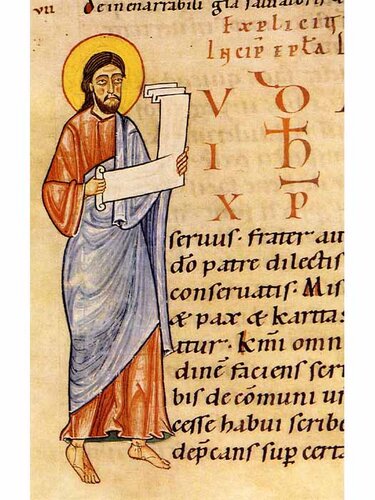 vii de inenarrabili gra saluatoris
Explicit
Incip epła I
V
I
X P
seruus. frater aut
do patre dilectis
conseruatis. Mis
& pax & karitas
atur. Kmi omn
dine faciens scri
bis de cōmuni ur
cesse habui scribe
dep̄cans sup̄ certa